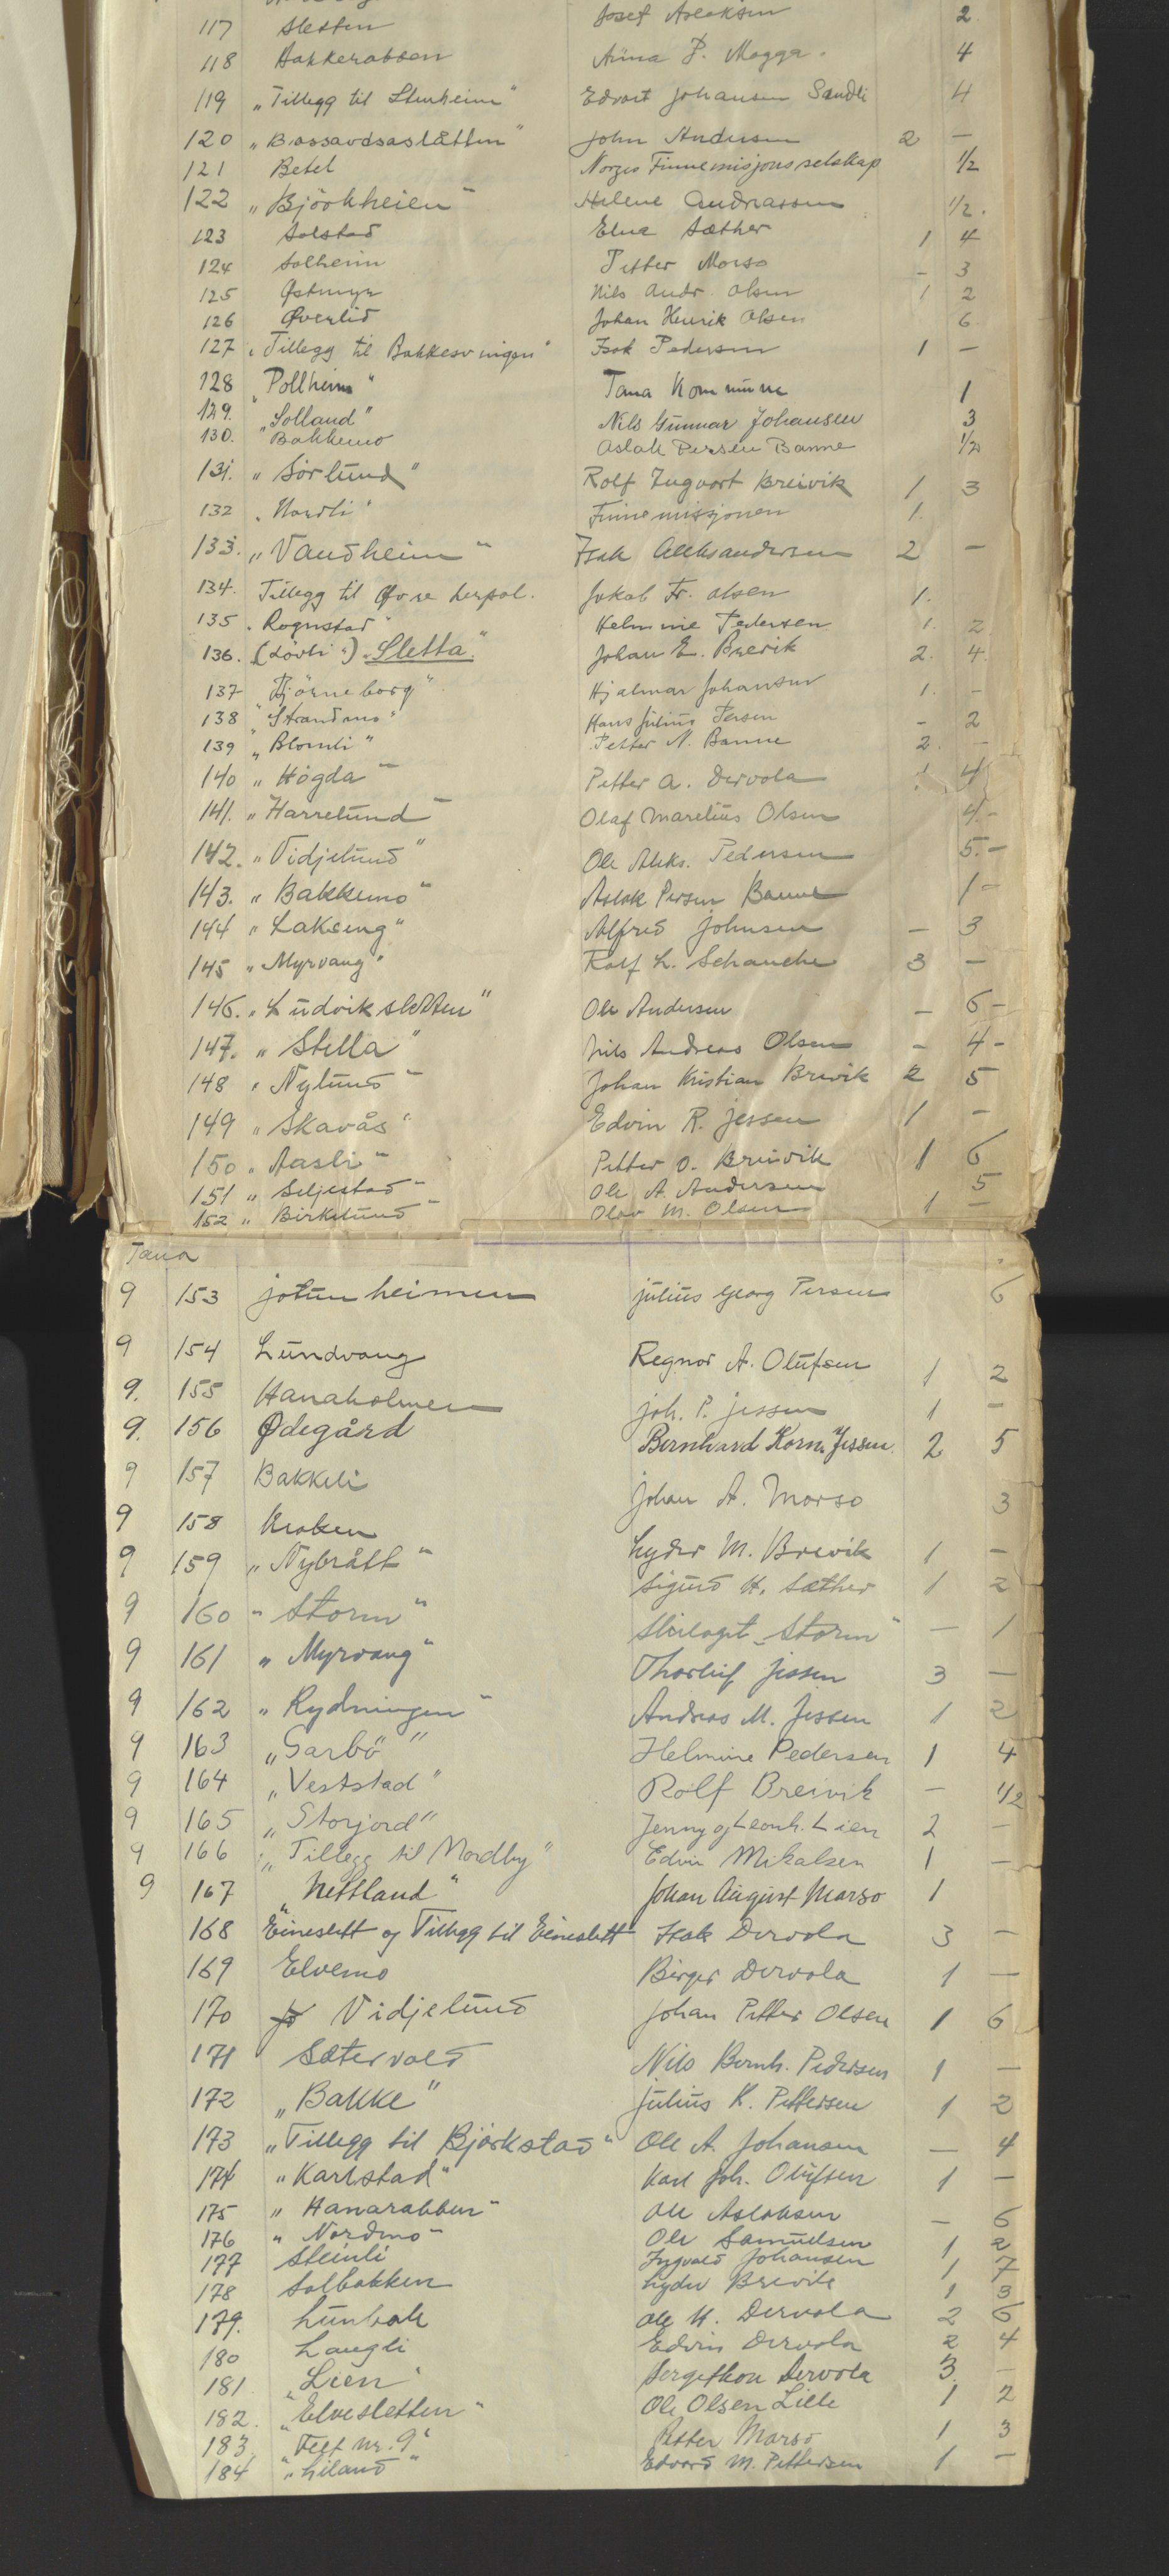 117 Sletten Josef Aslaksen 2.
118 Hakkerabben Anna P. Magga. 4
119 „Tillegg til Stenheim" Edvart Johansen Sandli 4
120 „Bassavdsaslåtten" John Andersen 2 —
121 Betel Norges Finnemisjons selskap 1/2
122 „Björkheien" Helene Andreassen 1/2.
123 Solstad Elna Sæther 1 4
124 Solheim Petter Morso - 3
125 Østmyr Nils Andr. Olsen 1 2
126 Øverlid Johan Henrik Olsen 6
127 „Tillegg til Bakkesvingen" Isak Pedersen 1 —
128 „Pollheim" Tana Kommune 1
129. „Solland" Nils Gunnar Johansen 3
130. Bakkemo Aslak Persen Banne 1/2
131. „Sörlund" Rolf Ingvart Breivik 1 3
132 „Nordli" Finnemissjonen 1.
133. „Vandheim" Isak Aleksandersen 2 —
134. Tillegg til Øvre Jakob Fr. Olsen 1.
135. Rognstad" Helmine Pedersen 1. 2
136. (Lövli") „Sletta." Johan E. Brevik 2. 4.
137 „Björneborg" Hjalmar Johansen 1. -
138 „Strandmo" Hans Julius Persen - 2
139 „Blomli" Petter N. Banne 2. -
140 „Högda" Petter A. Dervola 1 4
141. „Harrelund" Olaf Marelius Olsen 4.-
142. „Vidjelund" Ole Aleks. Pedersen 5.-
143. „Bakkemo" Aslak Persen Banne 1 -
144 „Lakseng" Alfred Johnsen — 3
145 „Myrvang" Rolf L. Schanche 3 —
146. „Ludvikslåtten" Ole Andersen — 6 -
147. „Stella" Nils Andreas Olsen - 4 -
148 „Nylund" Johan Kristian Brevik 2 5
149 „Skavås" Edvin R. Jessen 1 -
150 „Aasli" Petter O. Breivik 1 6
151 „Seljestad" Ole A. Andersen 5
152 „Birkelund" Olav M. Olsen 1 -
Tana
9 153 Jotunheimen Julius Georg Persen 6
9 154 Lundvang Regnor A. Olufsen 1 2
9. 155 Hanaholmen Joh. P. Jessen 1 -
9. 156 Ødegård Bernhard Korn. Jessen. 2 5
9 157 Bakkeli Johan A. Morso 3
9 158 Kroken Lyder M. Brevik 1 -
9 159 „Nybrått" Sigurd H. Sæther 1 2
9 160 „Storm" Skilaget „Storm" — 1
9 161 „Myrvang" Thorleif Jessen 3 —
9 162 „Rydningen" Andreas M. Jessen 1 2
9 163 „Garbö" Helmine Pedersen 1 4
9 164 „Veststad" Rolf Breivik — 1/2
9 165 „Storjord" Jenny og Leonh. Lien 2 —
9 166 „Tillegg til Nordby" Edvin Mikalsen 1 —
9 167 „Nettland" Johan August Marso 1
168 Eineslett og Tillegg til Eineslett" Isak Dervola 3 —
169 Elvemo Birger Dervola 1 —
170 Vidjelund Johan Petter Olsen 1 6
171 Sætervold Nils Bernh. Pedersen 1 —
172 „Bakke" Julius K. Pettersen 1 2
173 „Tillegg til Björkstad" Ole A. Johansen — 4
174 „Karlstad" Karl Joh. Olufsen 1 -
175 „Hanarabben" Ole Aslaksen — 6
176 „Nordmo" Ole Samuelsen 1 2
177 Steinli Ingvald Johansen 1 7
178 Solbakken Lyder Brevik 1 3
179. Lunbak Ole H. Dervola 2 6
180 Laugli Edvin Dervola 2 4
181 „Lien" Dervola 3 —
182. „Elvesletten" Ole Olsen Lille 1 2
183 „Felt nr. 9" Petter Marso 1 3
184 „Liland" Edvard M. Pettersen 1 —